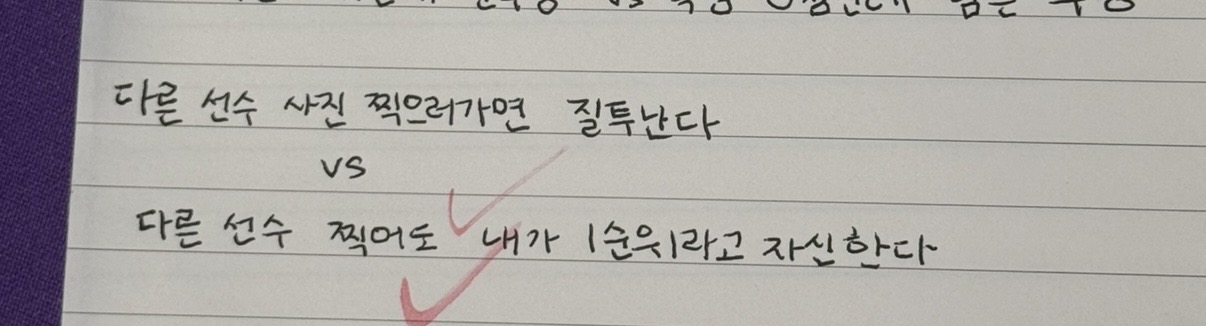 vs
다른 선수 사진 찍으러가면 질투난다
vs
다른 선수 찍어도 내가 1순위라고 자신한다